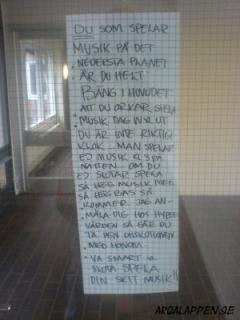 DU SOM SPELAR
MUSIK PÅ DET
NEDERSTA PLANET
ÄR DU HELT
BÄNG I HUVUDET
ATT DU ORKAR SPELA
MUSIK DAG IN & UT
DU ÄR INTE RIKTIGT
KLOK. MAN SPELAR
EJ MUSIK KL 3 PÅ
NATTEN. OM DU
EJ SLUTAR SPELA
SÅ HÖG MUSIK MED
SÅ HÖG BAS SÅ
KOMMER JAG AN-
MÄLA DIG HOS HYRES
VÄRDEN SÅ FÅR DU
TA DEN DISKUTIONEN
MED HONOM.
VA SMART &
SLUTA SPELA
DIN SKIT MUSIK!!
ARGALAPPEN.SE